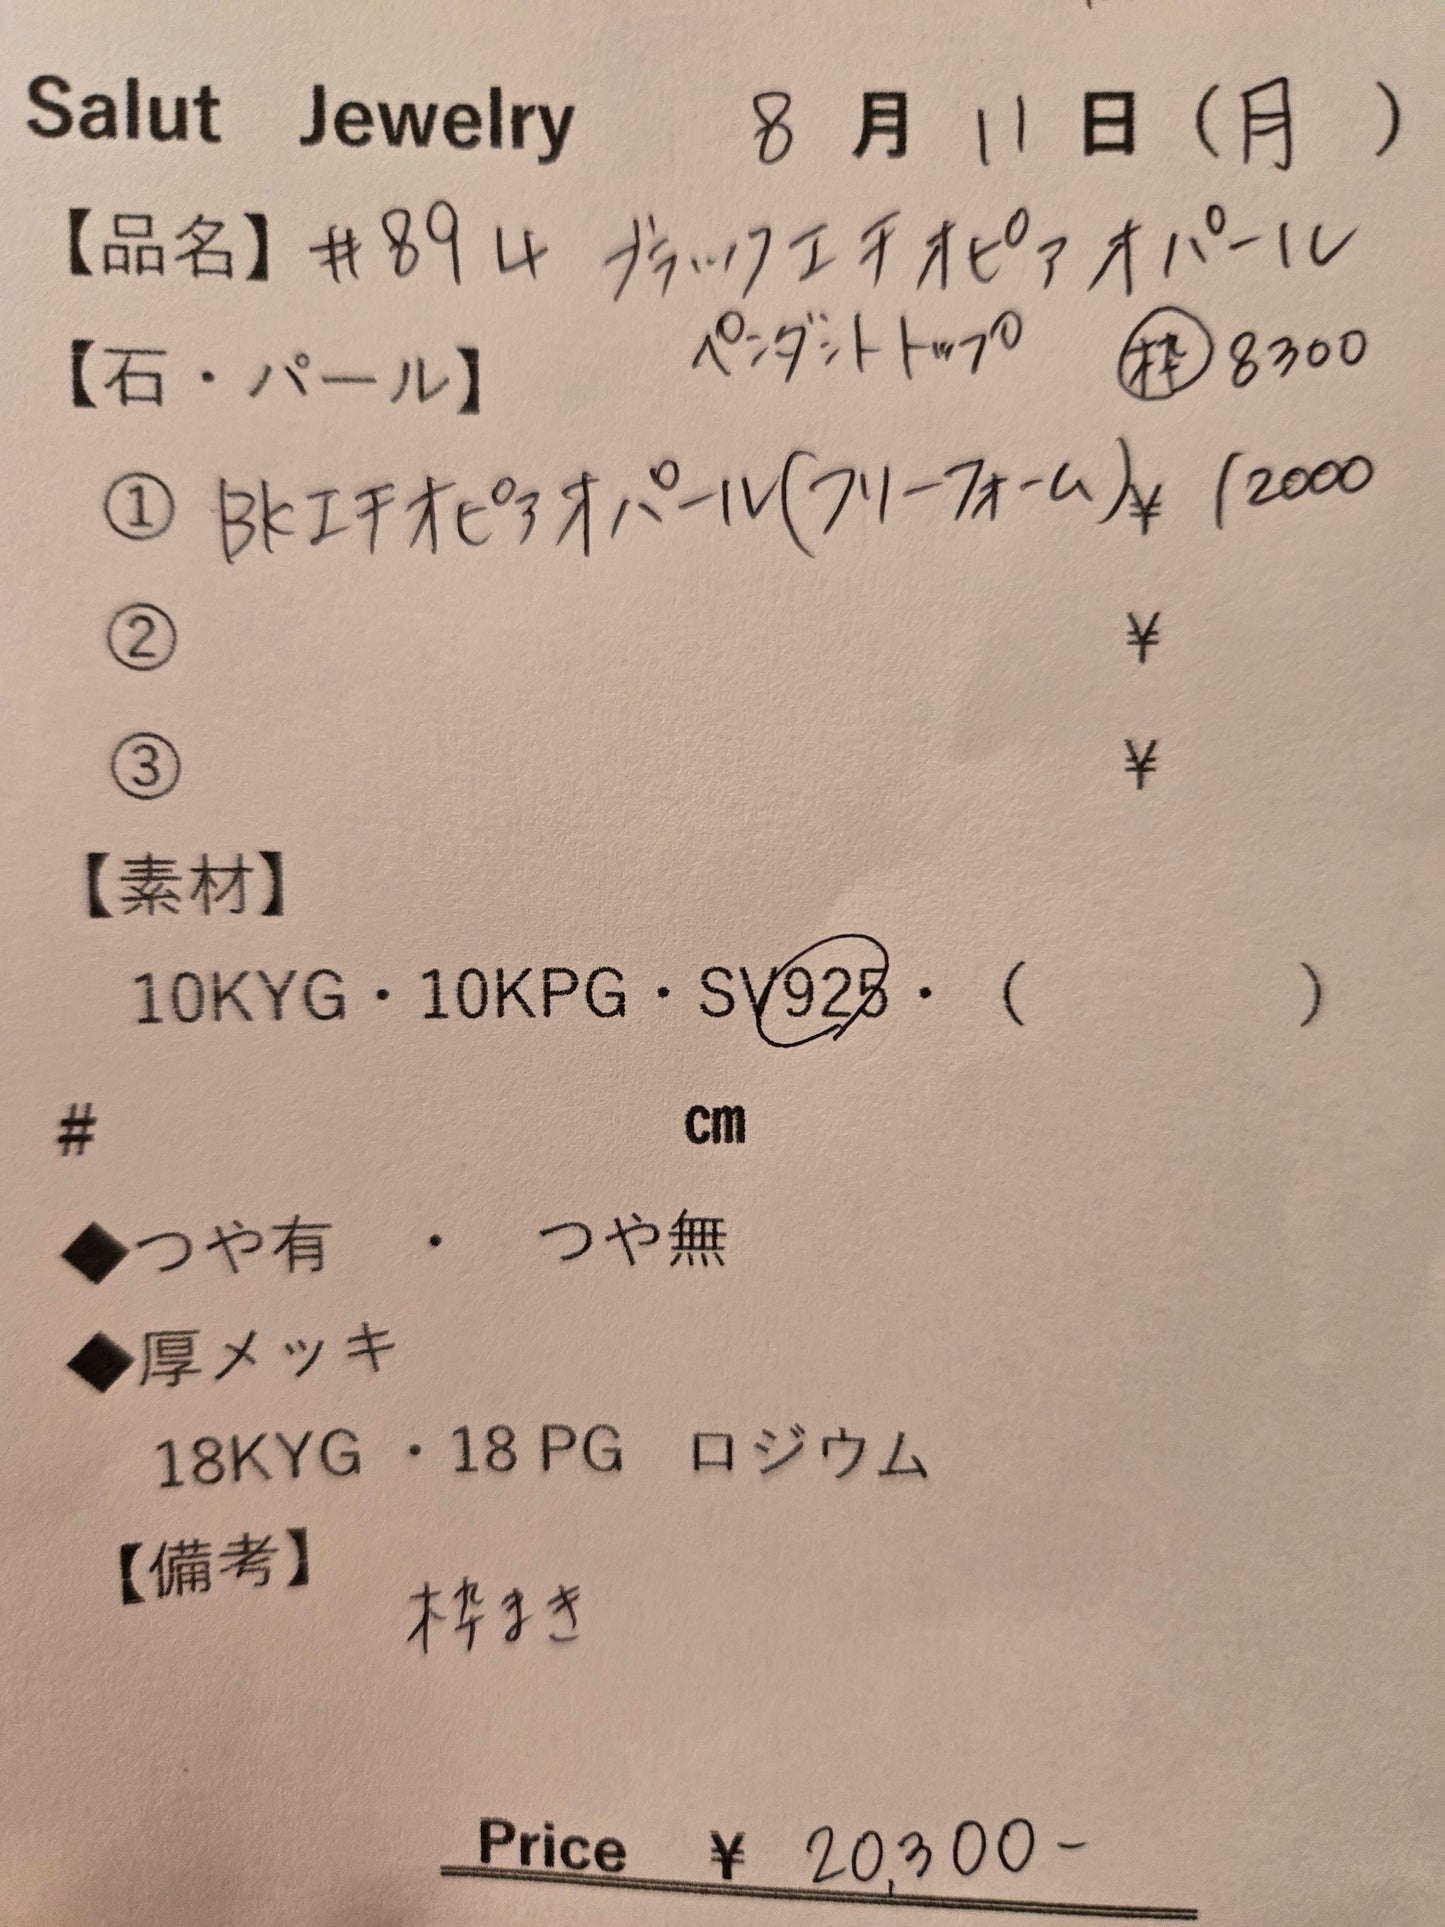 Salut Jewelry 8月11日(月)
【品名】#894 ブラックエチオピアオパール
ペンダントトップ ㊗枠 8300
【石・パール】
① BKエチオピアオパール(フリーフォーム)¥12000
② ¥
③ ¥
【素材】
10KYG・10KPG・SV925・( )
# cm
◆つや有 ・ つや無
◆厚メッキ
18KYG ・18 PG ロジウム
【備考】
枠まき
Price ¥ 20,300-